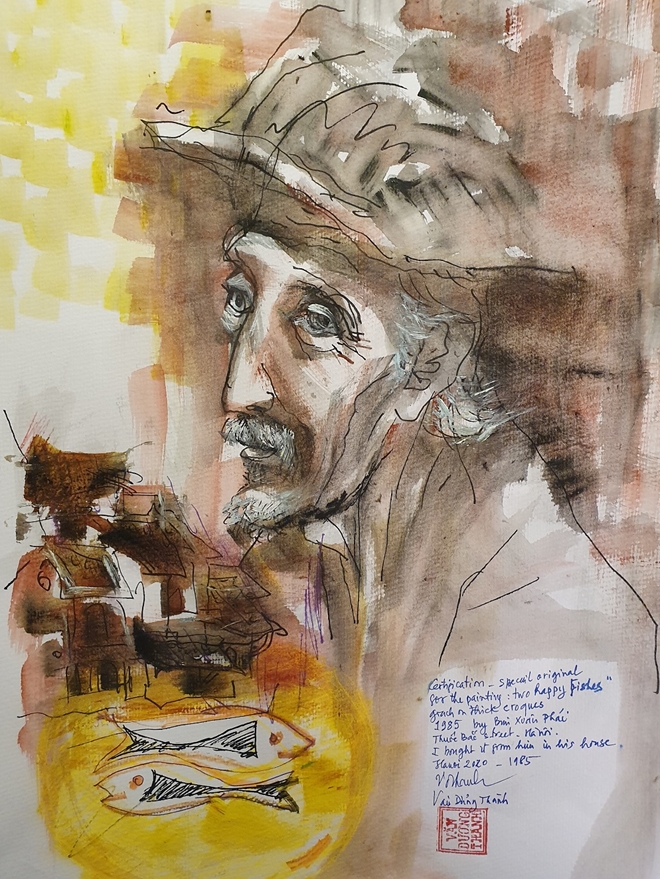 Certification - special original
for the painting : two happy Fishes"
gouch on thick croques
1985 by Bùi Xuân Phái
Thuốc Bắc street. Hà Nội.
I bought it from him in his house.
Hanoi 2020 - 1985
Văn Dương Thành
VĂN
DƯƠNG
THÀNH